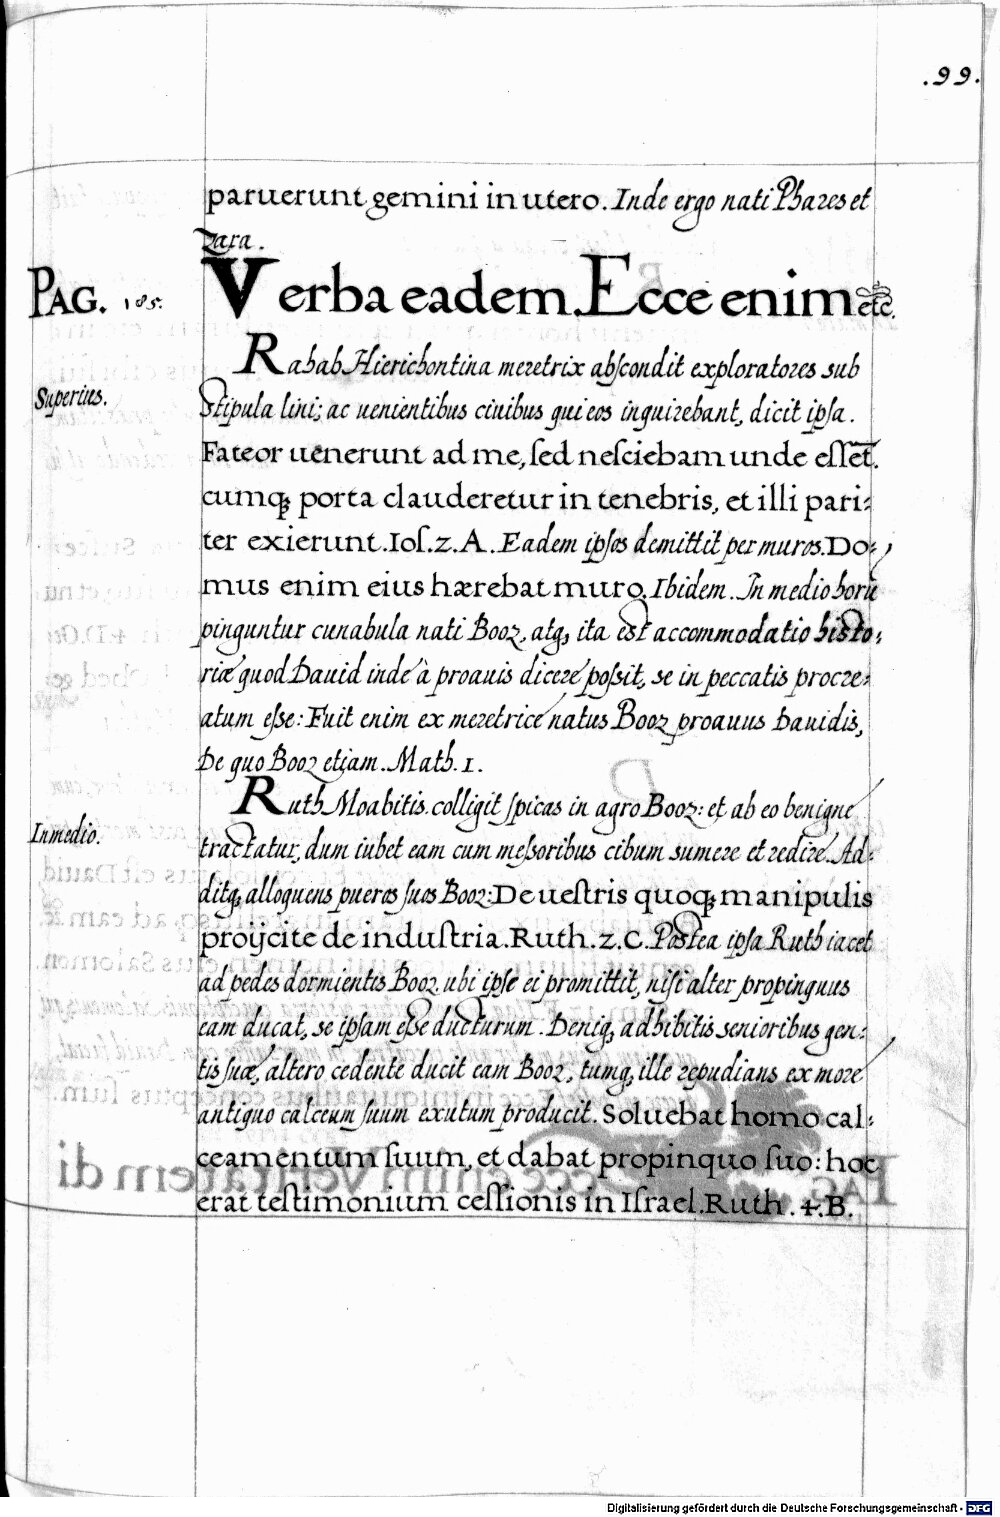 .99.
paruerunt gemini in utero. Inde ergo nati Phares et
zara.
PAG. 185. Verba eadem. Ecce enim etc.
Rahab Hierichontina meretrix abſcondit exploratores sub
Superius. Stipula lini; ac uenientibus ciuibus qui eos inquirebant, dicit ipſa.
Fateor uenerunt ad me, ſed neſciebam unde eſſet̅.
cumq; porta clauderetur in tenebris, et illi pari:
ter exierunt. Ioſ. 2. A. Eadem ipſos demittit per muros. Do:
mus enim eius hærebat muro. Ibidem. In medio horū
pinguntur cunabula nati Booz, atq; ita est accommodatio histo:
riæ quod Dauid inde à proauis dicere poſsit, se in peccatis procre:
atum eſse: Fuit enim ex meretrice natus Booz proauus Dauidis,
De quo Booz etiam. Math. 1.
Ruth Moabitis colligit ſpicas in agro Booz: et ab eo benigne
Inmedio. tractatur, dum iubet eam cum meſsoribus cibum sumere et redire. Ad:
ditq; alloquens pueros ſuos Booz: De ueſtris quoq; manipulis
proijcite de induſtria. Ruth. 2. C. Postea ipſa Ruth iacet
ad pedes dormientis Booz, ubi ipſe ei promittit, niſi alter propinquus
eam ducat, se ipſam eſse ducturum. Deniq; adhibitis senioribus gen:
tis ſuæ, altero cedente ducit eam Booz, tumq; ille repudians ex more
antiquo calceum ſuum exutum producit. Soluebat homo cal:
ceamentum ſuum, et dabat propinquo ſuo: hoc
erat teſtimonium ceſſionis in Iſrael. Ruth. 4. B.
Digitalisierung gefördert durch die Deutsche Forschungsgemeinschaft - DFG